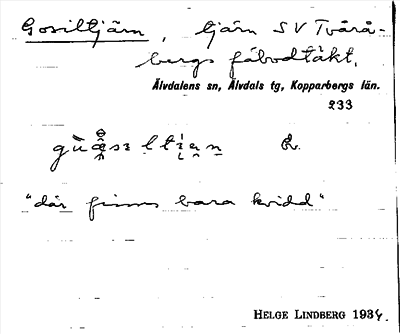 Gosiltjärn, tjärn SV Tvärå-
bergs fäbodtäkt,
Älvdalens sn, Älvdals tg, Kopparbergs län.
233
R.
"där finns bara kvidd"
HELGE LINDBERG 1934.